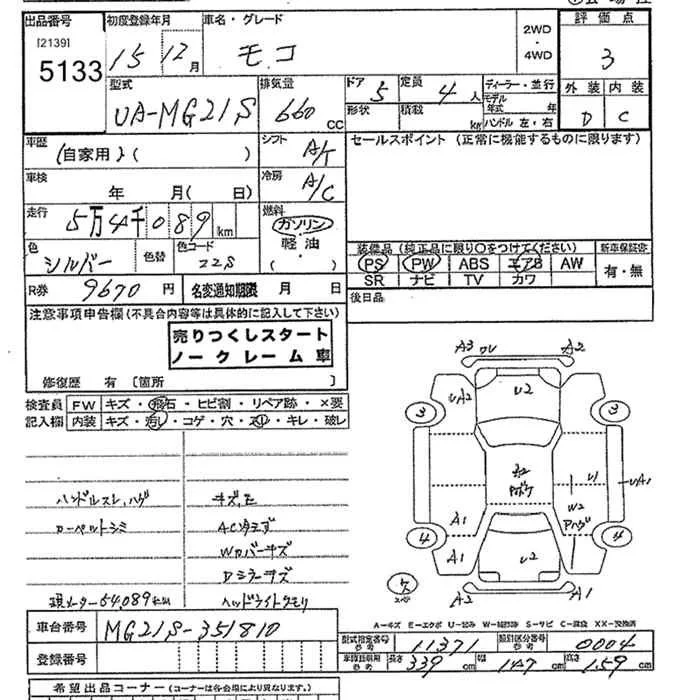 出品番号
[2139]
5133
初度登録年月
15 12月
車名・グレード
モコ
2WD
・
4WD
評価点
3
外装 内装
D C
型式
UA-MG21S
排気量
660 CC
ドア 5
定員 4人
形状
積載 kg
ディーラー・並行
モデル年式 年
ハンドル 左・右
車歴
(自家用)( )
シフト A/T
セールスポイント (正常に機能するものに限ります)
車検
年 月( 日)
冷房 A/C
走行
5万4千089 km
燃料
ガソリン
・
軽油
( )
色 シルバー
色替
色コード
Z2S
装備品 (純正品に限り○をつけてください)
新車保証書
PS PW ABS エアB AW
SR ナビ TV カワ
有・無
R券 9670円
名変通知期限 月 日
後日品
注意事項申告欄(不具合内容等は具体的に記入して下さい)
売りつくしスタート
ノークレーム車
修復歴 有 〔箇所 〕
検査員 FW キズ・飛石・ヒビ割・リペア跡・×要
記入欄 内装 キズ・汚レ・コゲ・穴・スレ・キレ・破レ
ハンドルスレ,ハゲ
キズ
カーペットシミ
Wカバーキズ
Dミラーキズ
現メーター54,089km
ヘッドライトクモリ
A3 ワレ A2
UA2 U2
3 3
U1 UA1
A1 W2
Aハゲ
4 4
A1 U2
A2 A1
A-キズ E-エクボ U-凹み W-補修跡 S-サビ C-腐食 XX-交換済
車台番号 MG21S-351810
登録番号
型式指定番号 参考 11371
類別区分番号 参考 0004
車検証期間 参考 長さ 339 cm 幅 147 cm 高さ 159 cm
希望出品コーナー (コーナーは各会場により異なります。)